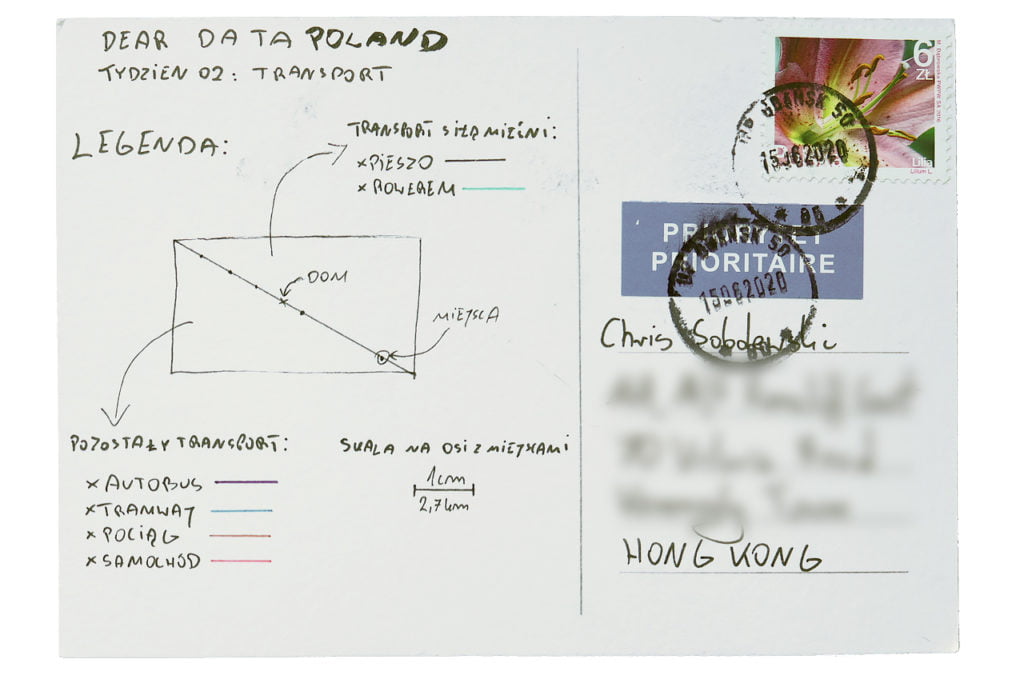 DEAR DATA POLAND
TYDZIEŃ 02: TRANSPORT
LEGENDA:
TRANSPORT SIŁĄ MIĘŚNI:
×PIESZO
×ROWEREM
DOM
MIEJSCA
POZOSTAŁY TRANSPORT:
×AUTOBUS
×TRAMWAJ
×POCIĄG
×SAMOCHÓD
SKALA NA OSI Z MIEJSCAMI
1cm
2,7km
6
ZŁ
Lilia
Lilium L.
GDAŃSK 50
15062020
PRIORITAIRE
GDAŃSK 50
15062020
Chris Sobolewski
HONG KONG